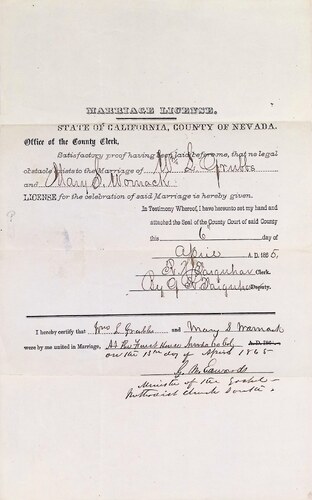 MARRIAGE LICENSE.
STATE OF CALIFORNIA, COUNTY OF NEVADA.
Office of the County Clerk,
Satisfactory proof having been laid before me, that no legal
obstacle exists to the Marriage of Wm L. Grubbs
and Mary S. Womack
LICENSE for the celebration of said Marriage is hereby given.
In Testimony Whereof, I have hereunto set my hand and
attached the Seal of the County Court of said County
this 6 day of
April A.D. 1865.
Clerk.
By Deputy.
I hereby certify that Wm L Grubbs and Mary S Womack
were by me united in Marriage, At the House Nevada
on the 13th day of April 1865
Edwards
Minister of the Gospel
Methodist Church South.